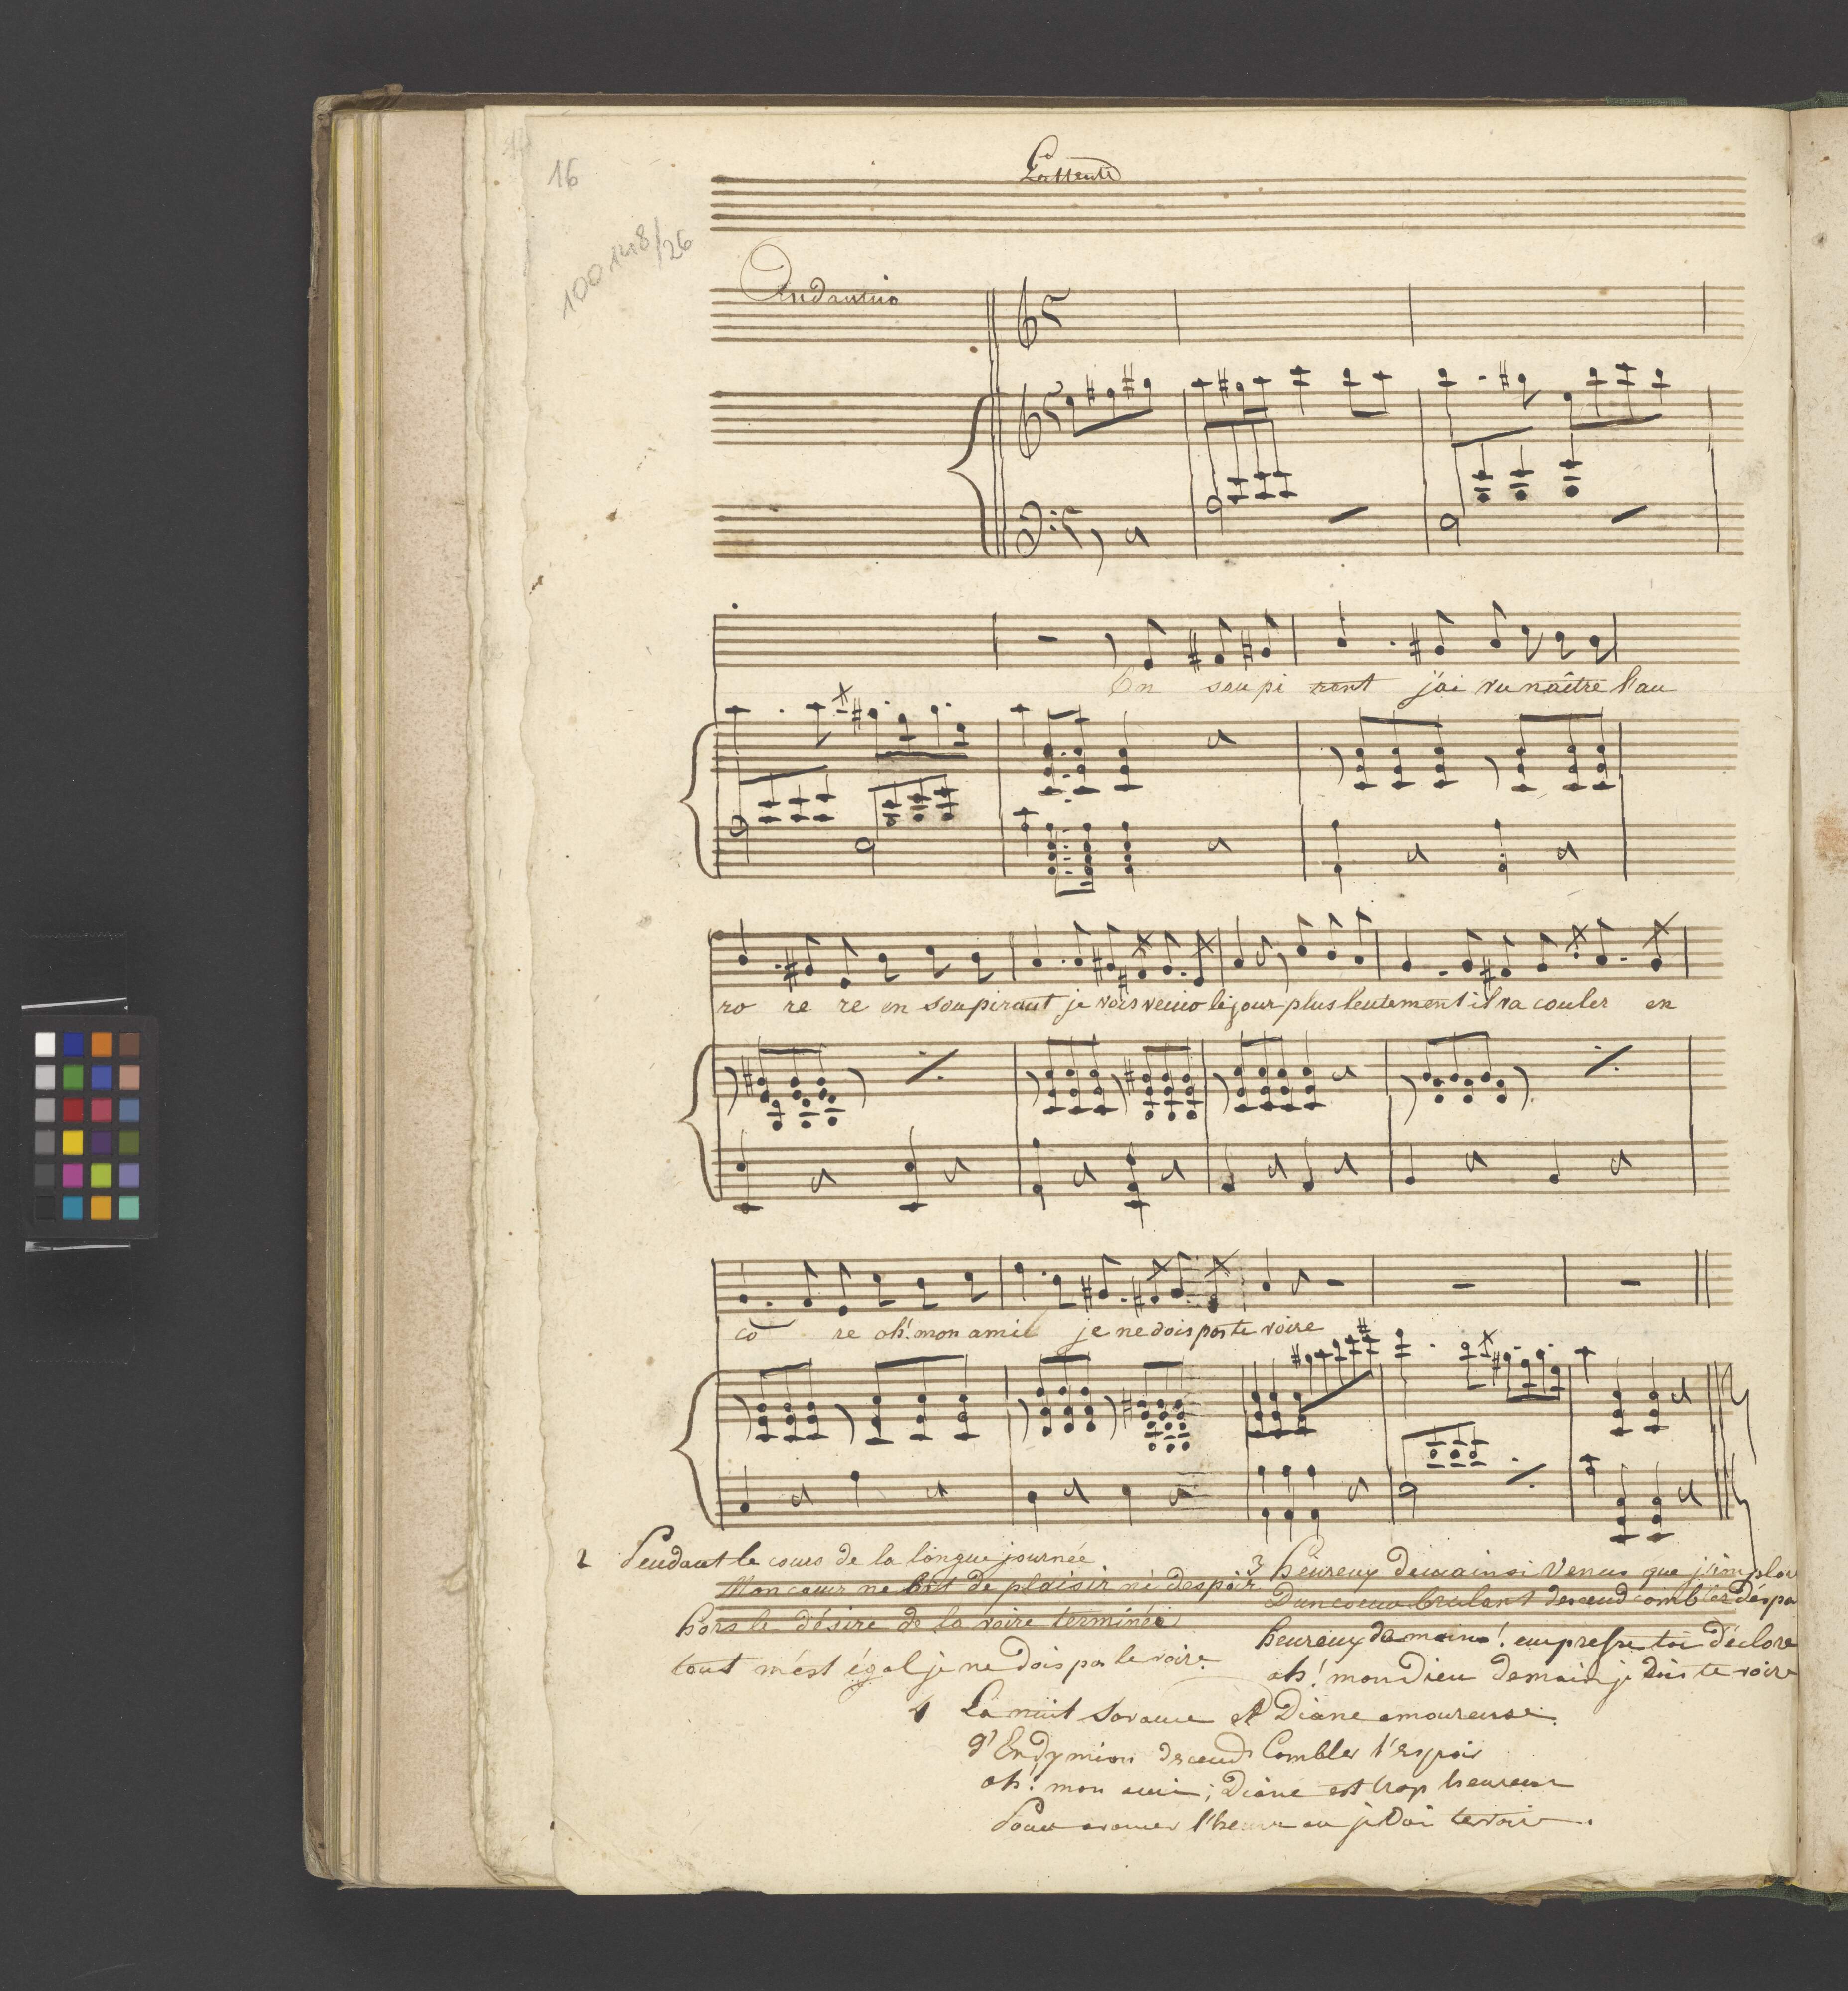 16
100.148/26
L'attente
Andantino
En soupi rant j'ai vu naître l'au
ro re re en soupirant je vois venir le jour plus lentement il va couler en
co re oh! mon ami je ne dois pas te voire
2 Pendant le cours de la longue journée
Mon coeur ne voit de plaisir ni d'espoir
hors le désire de la voire terminée
tout m'est égal je ne dois pas le voire
3 heureux demain si Venus que j'implor
D'un coeur brulant descend combler l'espo
heureux demain! empresse toi d'éclore
ah! mon Dieu demain je dois te voire
4 La nuit s'avance et Diane amoureuse
d'Endymion descend Combler l'espoir
ah! mon ami; Diane est trop heureuse
Pour avancer l'heure ou je Doi te voir.